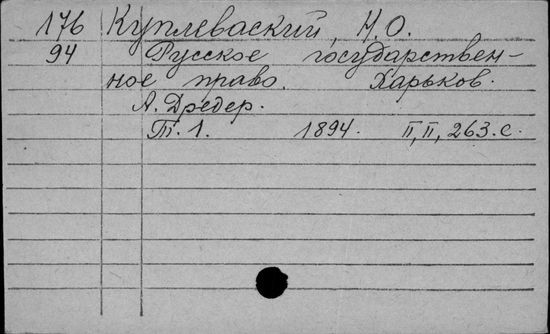 176 Куплеваский, Н.О.
94 Русское государствен-
ное право. Харьков.
А. Дредер.
Т. 1. 1894. II, II, 263. с.